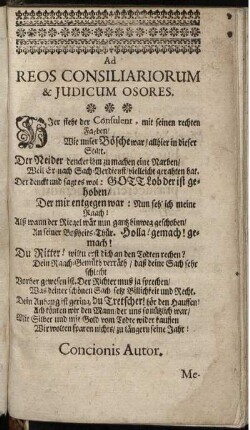 Ad
REOS CONSILIARIORUM
& JUDICUM OSORES.
HJer steht der Consulent, mit seinen rechten
Farben/
Wie unser Böscht war/ allhier in dieser
Statt.
Der Neider dencket ihm zu machen eine Narben/
Weil Er nach Sach Verdienst/ vielleicht gerahten hat.
Der denckt und sagt es wol: GOTT Lob der ist ge-
hoben/
Der mir entgegen war: Nun seh' ich meine
Raach!
Alß wann der Riegel wär nun gantz hinweg geschoben/
An seiner Boßheits-Thür. Holla! gemach! ge-
mach!
Du Ritter! wiltu erst dich an den Todten rechen?
Dein Raach-Gemüth verräth/ daß deine Sach sehr
schlecht
Vorher gewesen ist. Der Richter muß ja sprechen/
Was deiner schönen Sach setzt Billichkeit und Recht.
Dein Anhang ist gering, du Tretscher! hör den Hauffen/
Ach könten wir den Mann/ der uns so nützlich war/
Mit Silber und mit Gold vom Todte wider kauffen
Wir wolten sparen nichts/ zu längern seine Jahr!
Concionis Autor.
Me-